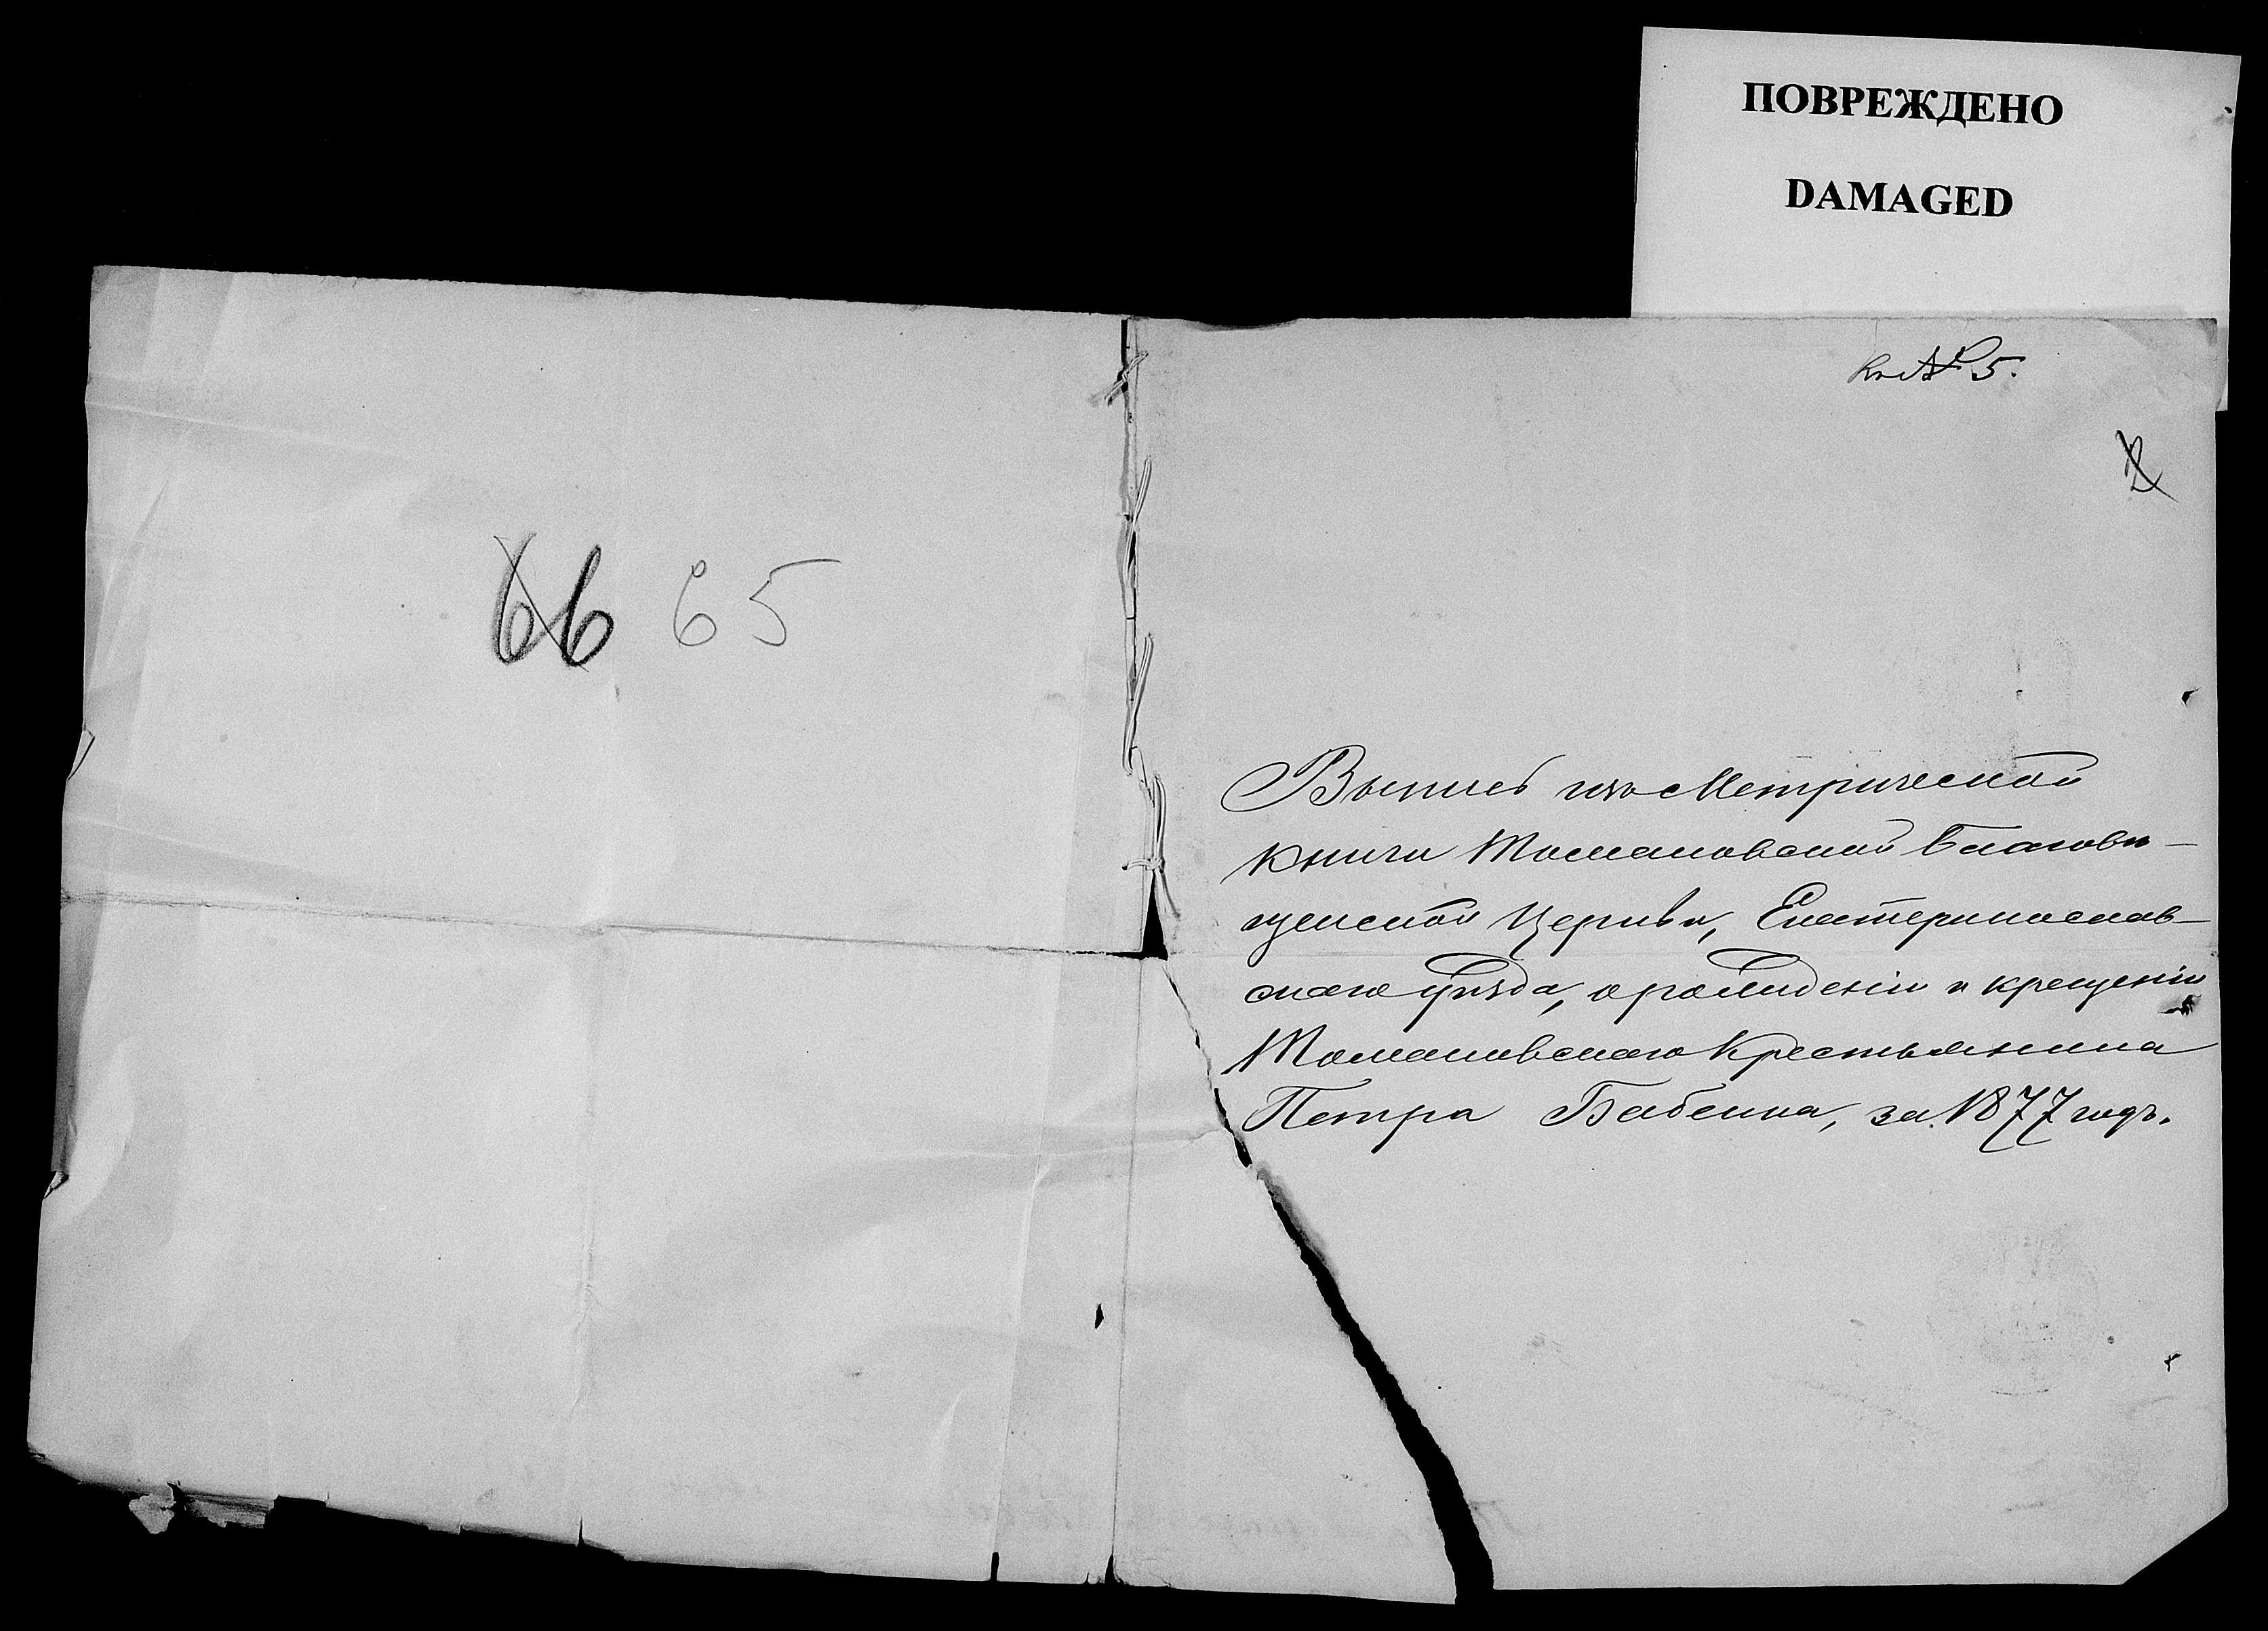 ПОВРЕЖДЕНО
DAMAGED
Кн № 5.
2
66 65
Выпись изъ Метрической
книги Томаковской Благовѣ-
щенской Церкви, Екатеринослав-
скаго уѣзда, о рожденіи и крещеніи
Томаковскаго Крестьянина
Петра Бабенка, за 1877 годъ.